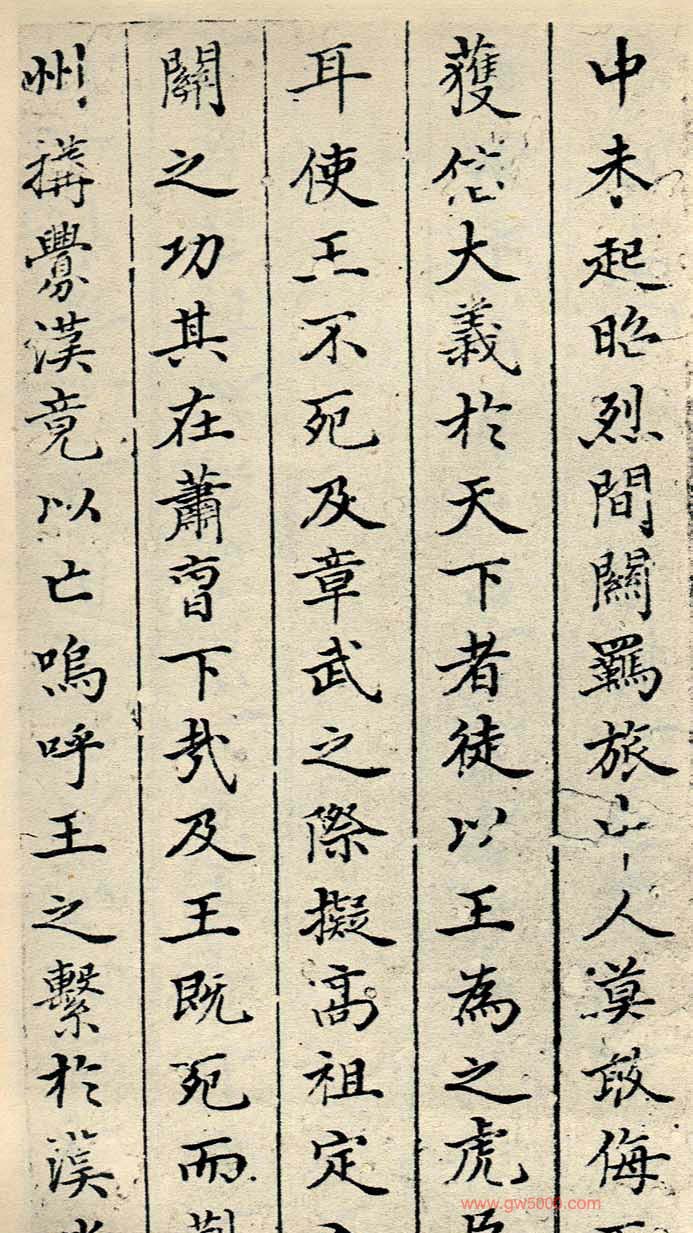 中未起昭烈間關羈旅人漠敢侮
獲大義於天下者徒以王為之虎臣
耳使王不死及章武之際擬高祖定
關之功其在蕭曹下哉及王既死而荆
州搆釁漢竟以亡嗚呼王之繫於漢
www.gw5000.com